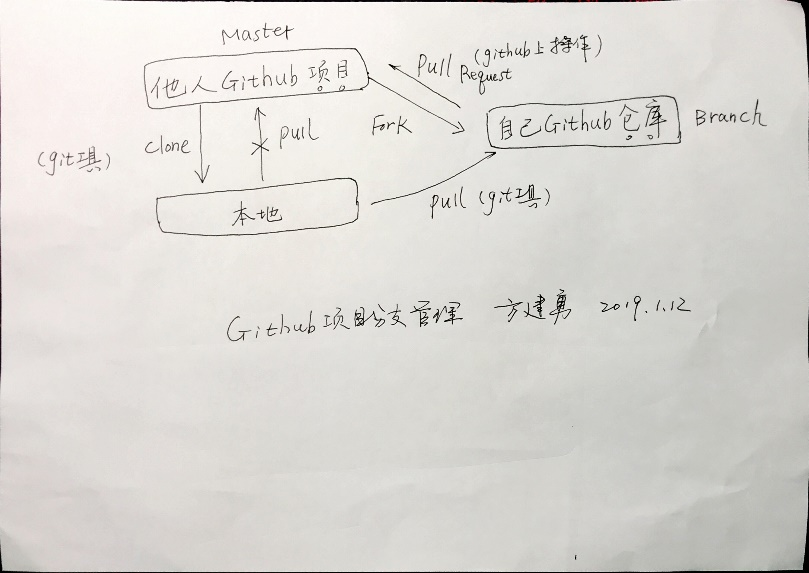 Master
他人Github项目
Pull Request (github上操作)
Fork
自己Github仓库
Branch
(git工具)
clone
pull
本地
pull (git工具)
Github项目分支管理 方建勇 2019.1.12